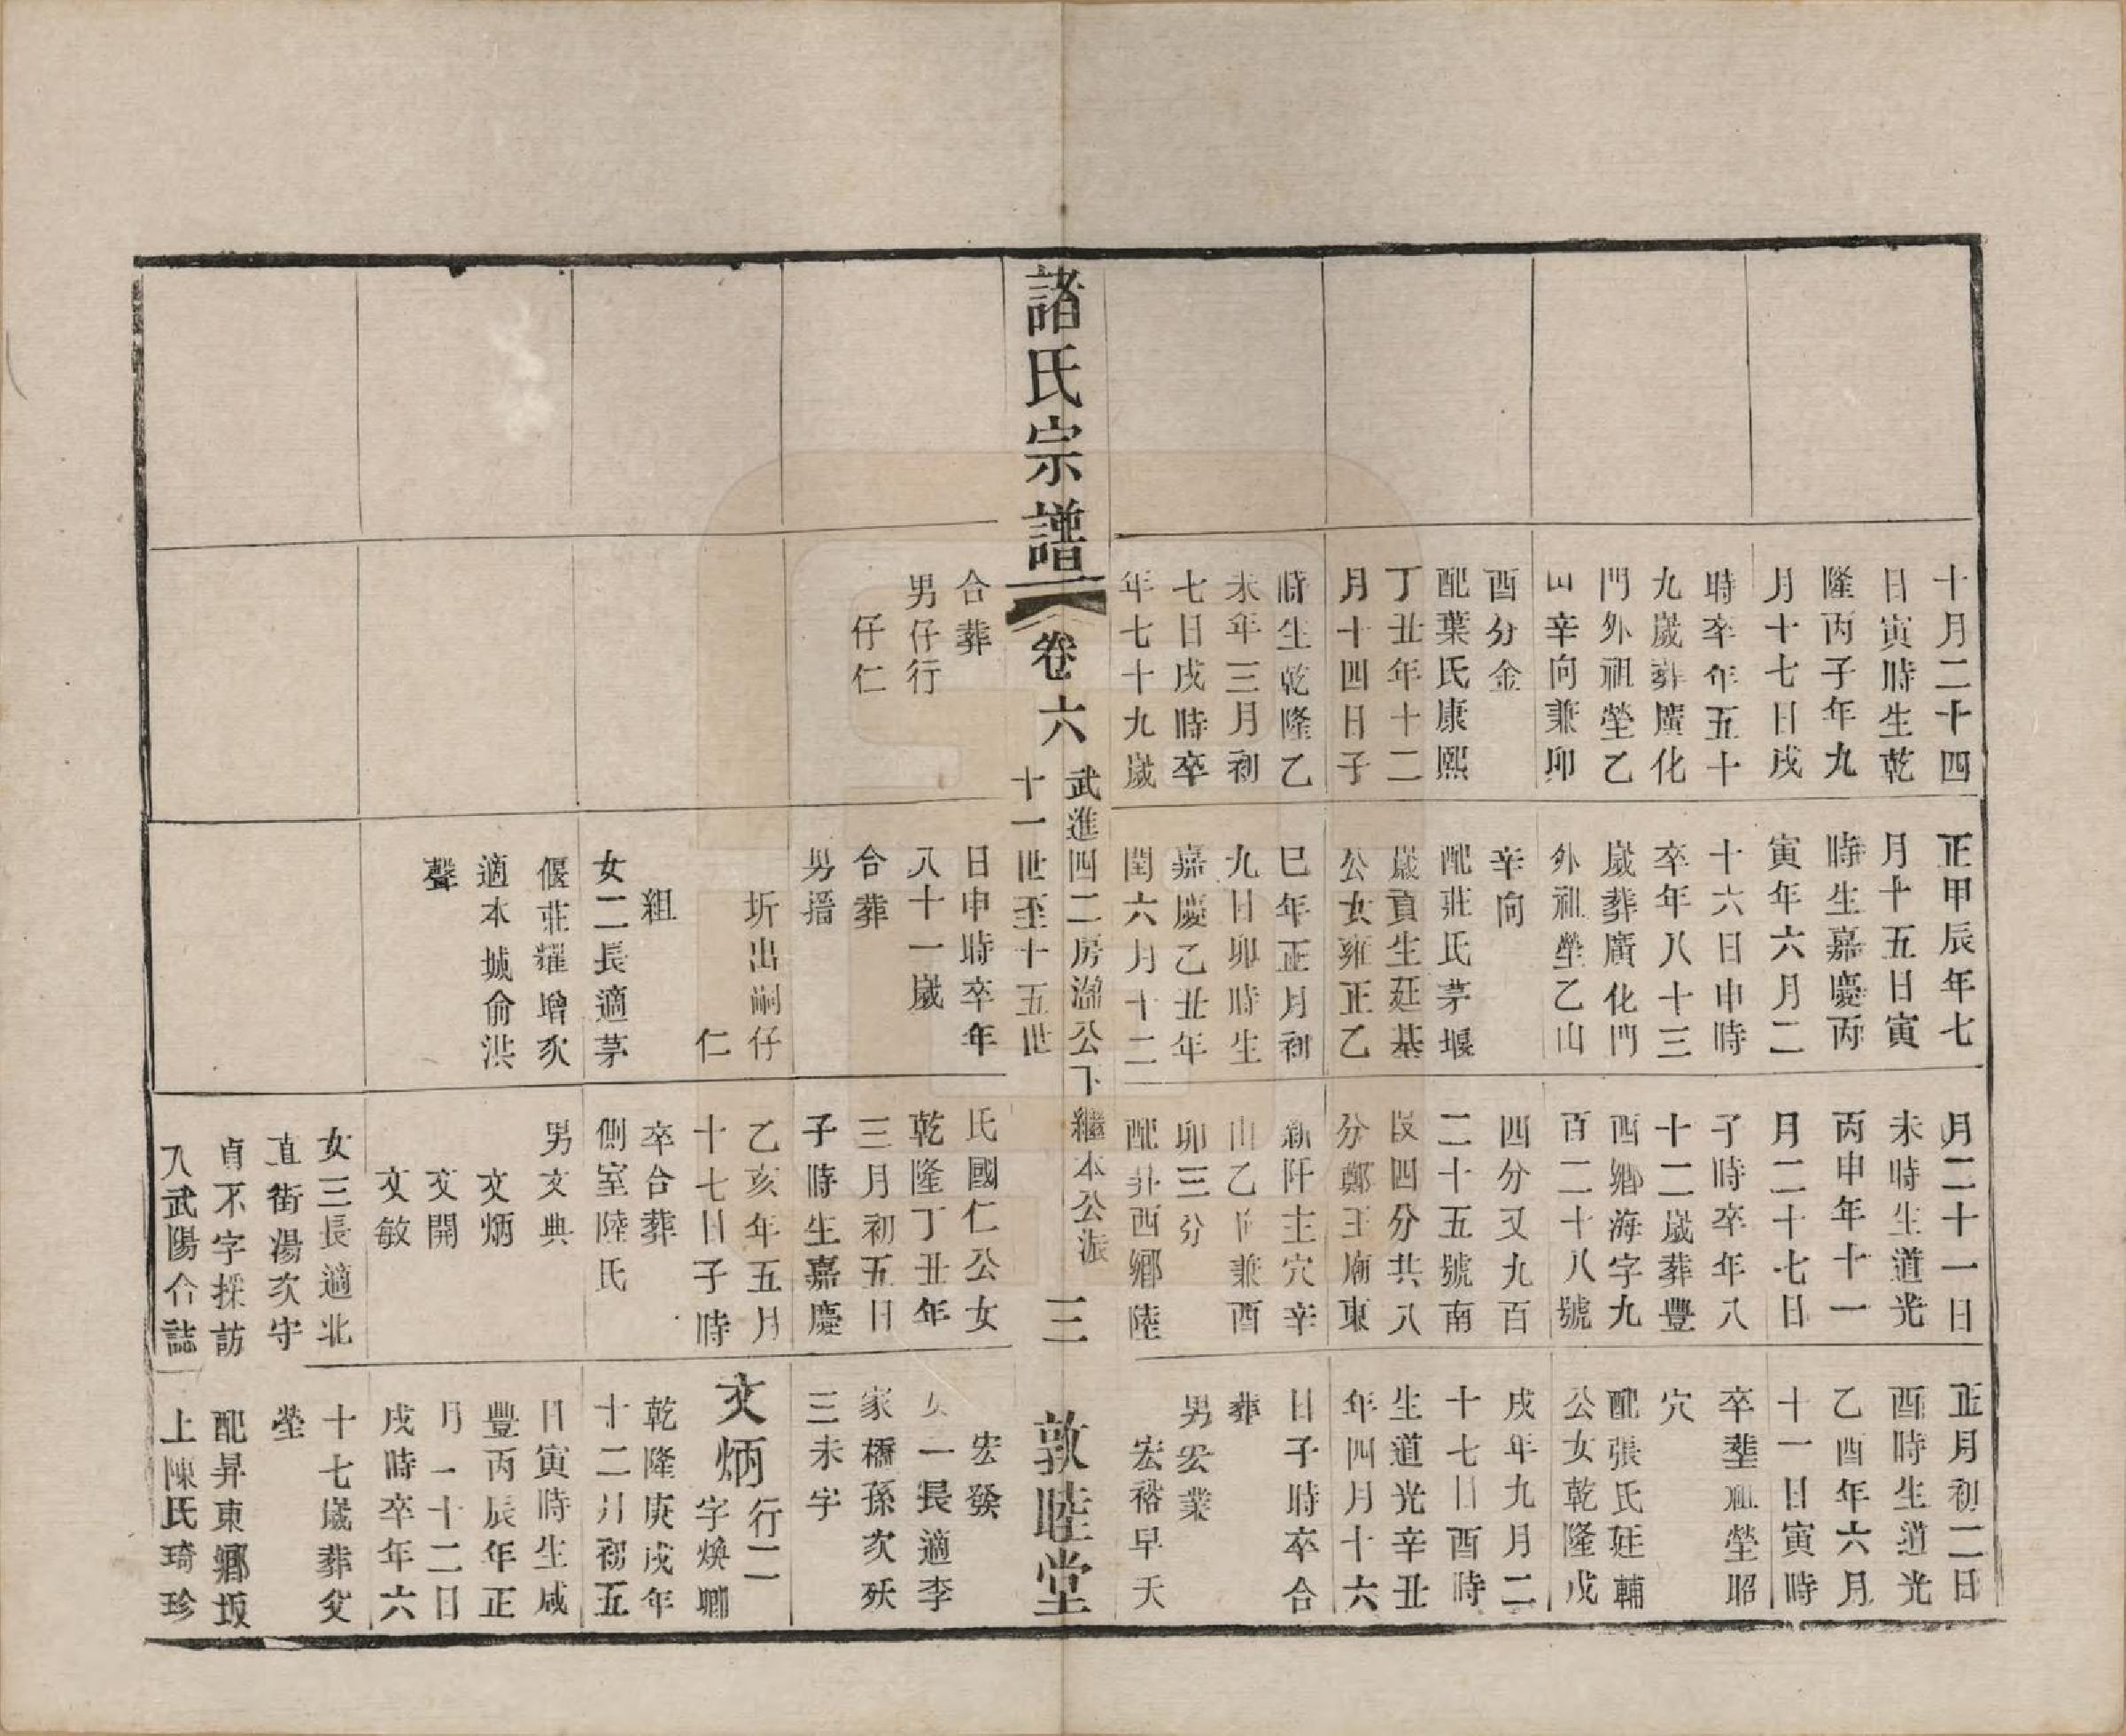 十月二十四
日寅時生乾
隆丙子年九
月十七日戌
時卒年五十
九歲葬廣化
門外祖塋乙
山辛向兼卯
酉分金
配葉氏康熙
丁丑年十二
月十四日子
時生乾隆乙
未年三月初
七日戌時卒
年七十九歲
正甲辰年七
月十五日寅
時生嘉慶丙
寅年六月二
十六日申時
卒年八十三
歲葬廣化門
外祖塋乙山
辛向
配莊氏茅堰
歲貢生廷基
公女雍正乙
巳年正月初
九日卯時生
嘉慶乙丑年
閏六月十二
月二十一日
未時生道光
丙申年十一
月二十七日
子時卒年八
十二歲葬豐
西鄉海字九
百二十八號
四分又九百
二十五號南
段四分共八
分鄭王廟東
新阡主穴辛
山乙向兼酉
卯三分
配井西鄉陸
正月初二日
酉時生道光
乙酉年六月
十一日寅時
卒葬祖塋昭
穴
配張氏廷輔
公女乾隆戊
戌年九月二
十七日酉時
生道光辛丑
年四月十六
日子時卒合
葬
男宏業
宏裕早夭
諸氏宗譜
卷六
武進四二房瀛公下繼本公派
十一世至十五世
三
敦睦堂
合葬
男仔行
仔仁
日申時卒年
八十一歲
合葬
男搢
圻出嗣仔
仁
組
女二長適茅
偃莊耀增次
適本城俞洪
聲
氏國仁公女
乾隆丁丑年
三月初五日
子時生嘉慶
乙亥年五月
十七日子時
卒合葬
側室陸氏
男文典
文炳
文開
文敏
女三長適北
直街湯次守
貞不字採訪
入武陽合誌
宏發
女一長適李
家橋孫次殀
三未字
文炳
行二
字煥卿
乾隆庚戌年
十二月初五
日寅時生咸
豐丙辰年正
月一十二日
戌時卒年六
十七歲葬父
塋
配昇東鄉坂
上陳氏琦珍